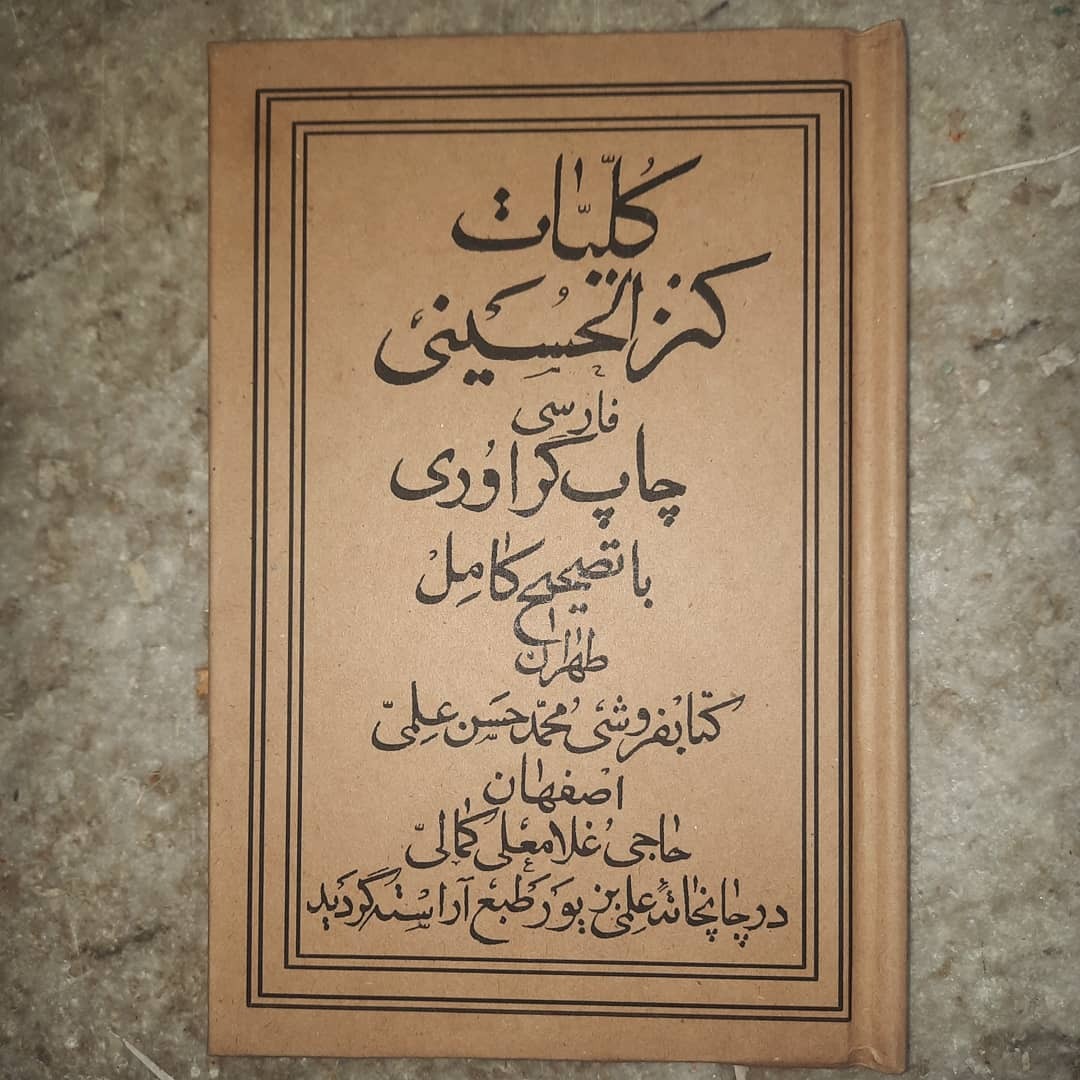 کلیّات
کنز الحسینی
فارسی
چاپ گراوری
با تصحیح کامل
طهران
کتابفروشی محمّد حسن علمی
اصفهان
حاجی غلامعلی کمالی
در چاپخانهٔ علمی بزیور طبع آراسته گردید